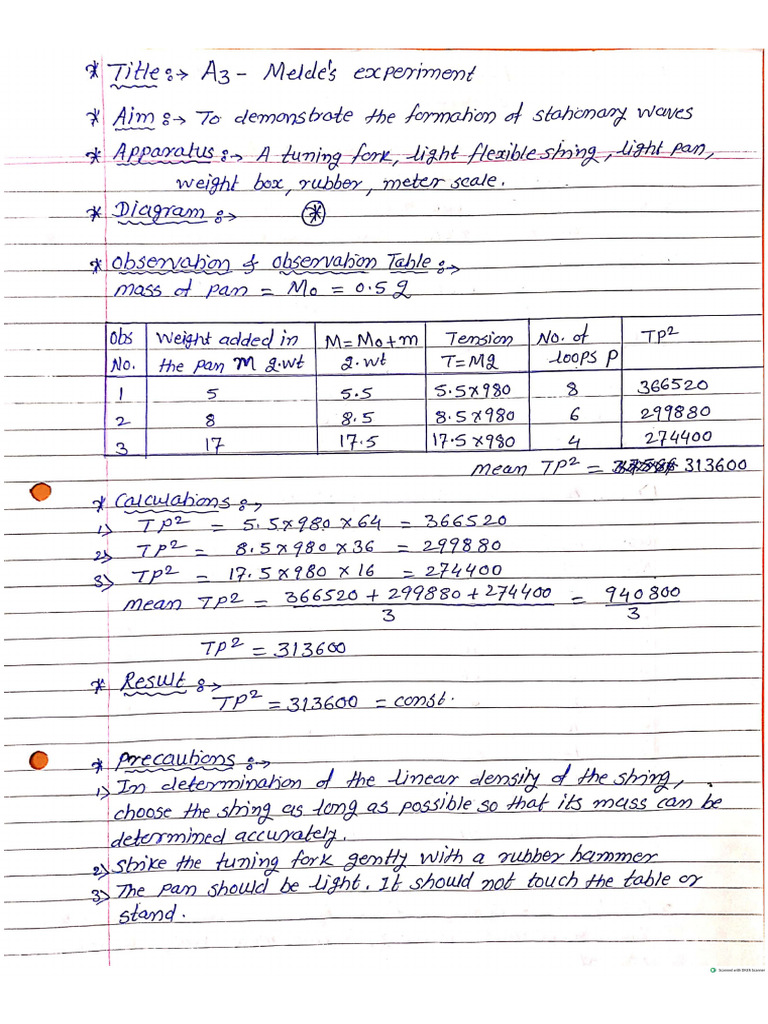 * Title:→ A3 - Melde's experiment
* Aim:→ To demonstrate the formation of stationary waves
* Apparatus:→ A tuning fork, light flexible string, light pan,
weight box, rubber, meter scale.
* Diagram:→ *
* Observation & Observation Table:→
mass of pan = M0 = 0.5 g
Obs No. | Weight added in the pan m g.wt | M=M0+m g.wt | Tension T=Mg | No. of loops P | TP²
1 | 5 | 5.5 | 5.5×980 | 8 | 366520
2 | 8 | 8.5 | 8.5×980 | 6 | 299880
3 | 17 | 17.5 | 17.5×980 | 4 | 274400
mean TP² = 313600
* Calculations:→
1) TP² = 5.5×980×64 = 366520
2) TP² = 8.5×980×36 = 299880
3) TP² = 17.5×980×16 = 274400
mean TP² = 366520 + 299880 + 274400 / 3 = 940800 / 3
TP² = 313600
* Result:→
TP² = 313600 = const.
* Precautions:→
1) In determination of the linear density of the string,
choose the string as long as possible so that its mass can be
determined accurately.
2) Strike the tuning fork gently with a rubber hammer
3) The pan should be light. It should not touch the table or
stand.
Scanned with OKEN Scanner